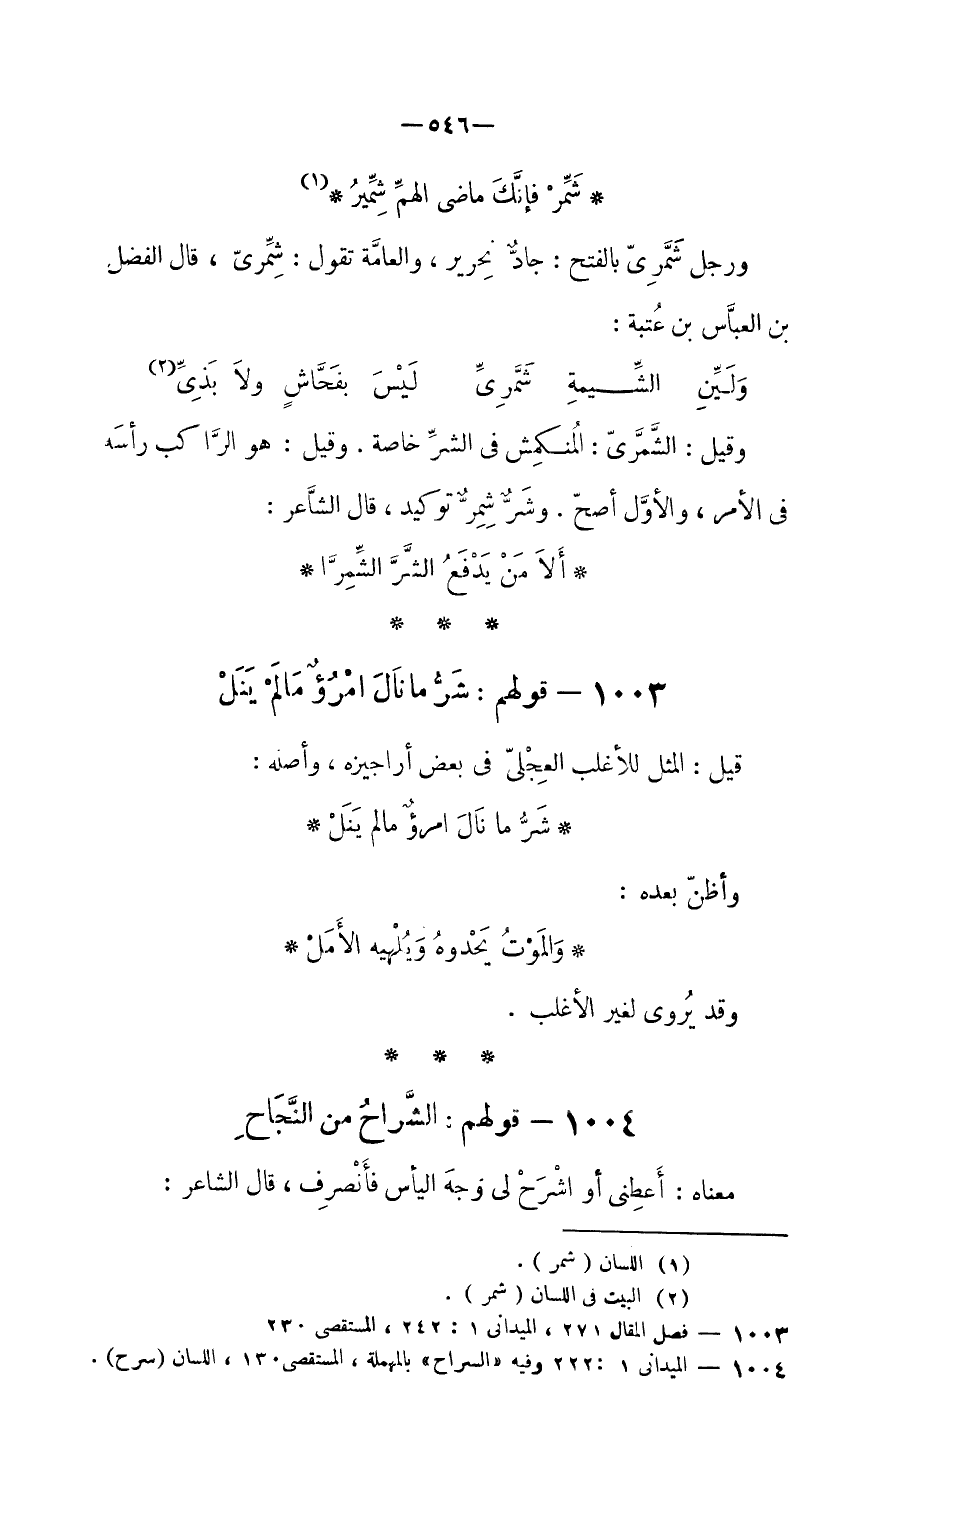 —٥٤٦—
* شَمِّرْ فإنَّكَ ماضى الهمِّ شِمِّيرُ *(١)
ورجل شَمَّرِىّ بالفتح : جادٌّ نِحرير ، والعامَّة تقول : شِمِّرىّ ، قال الفضل
بن العبَّاس بن عُتبة :
وَلَـيِّنِ الشِّـــيمةِ شَمَّرِىِّ لَيْسَ بفَحَّاشٍ ولاَ بَذِىِّ(٢)
وقيل : الشَّمَّرىّ : المُنـكمِش فى الشرِّ خاصة . وقيل : هو الرَّاكب رأسَه
فى الأمر ، والأوَّل أصحّ . وشَرٌّ شِمِرٌّ توكيد ، قال الشاَّعر :
* أَلاَ مَنْ يَدْفَعُ الشَّرَّ الشِّمِرَّا *
* * *
١٠٠٣ – قولهم : شَرُّ ما نَالَ امْرُؤٌ مَالَمْ يَنَلْ
قيل : المثل للأغلب العِجْلىّ فى بعض أراجيزه ، وأصله :
* شَرُّ ما نَالَ امرؤٌ مالم يَنَلْ *
وأظنّ بعده :
* وَالمَوْتُ يَحْدوهُ وَيُلْهيه الأَمَلْ *
وقد يُروى لغير الأغلب .
* * *
١٠٠٤ – قولهم : الشَّراحُ من النَّجَاحِ
معناه : أَعطِنى أو اشْرَحْ لى وَجهَ اليأس فأَنْصرِف ، قال الشاعر :
(١) اللسان ( شمر ) .
(٢) البيت فى اللسان ( شمر ) .
١٠٠٣ – فصل المقال ٢٧١ ، الميدانى ١ : ٢٤٢ ، المستقصى ٢٣٠
١٠٠٤ – الميدانى ١ : ٢٢٢ وفيه «السراح» بالمهملة ، المستقصى ١٣٠ ، اللسان (سرح) .